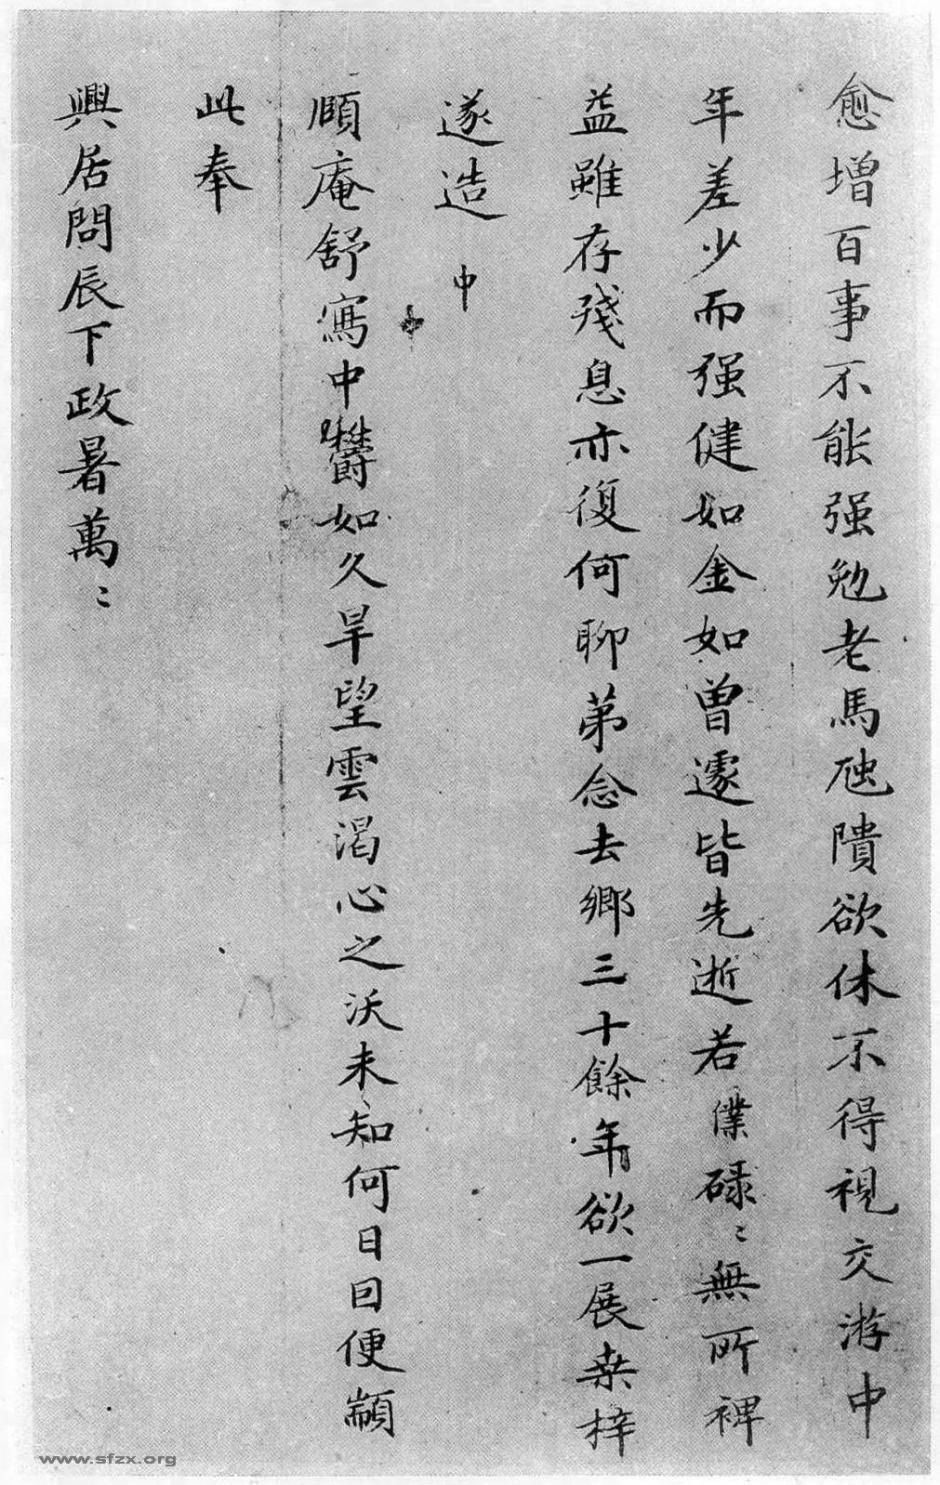 愈增百事不能强勉老馬虺隤欲休不得視交游中
年差少而强健如金如曾遽皆先逝若僕碌〻無所裨
益雖存殘息亦復何聊第念去鄉三十餘年欲一展桑梓
遂造中
頤庵舒寫中欝如久旱望雲渴心之沃未知何日回便顓
此奉
興居問辰下政暑萬〻
www.sfzx.org